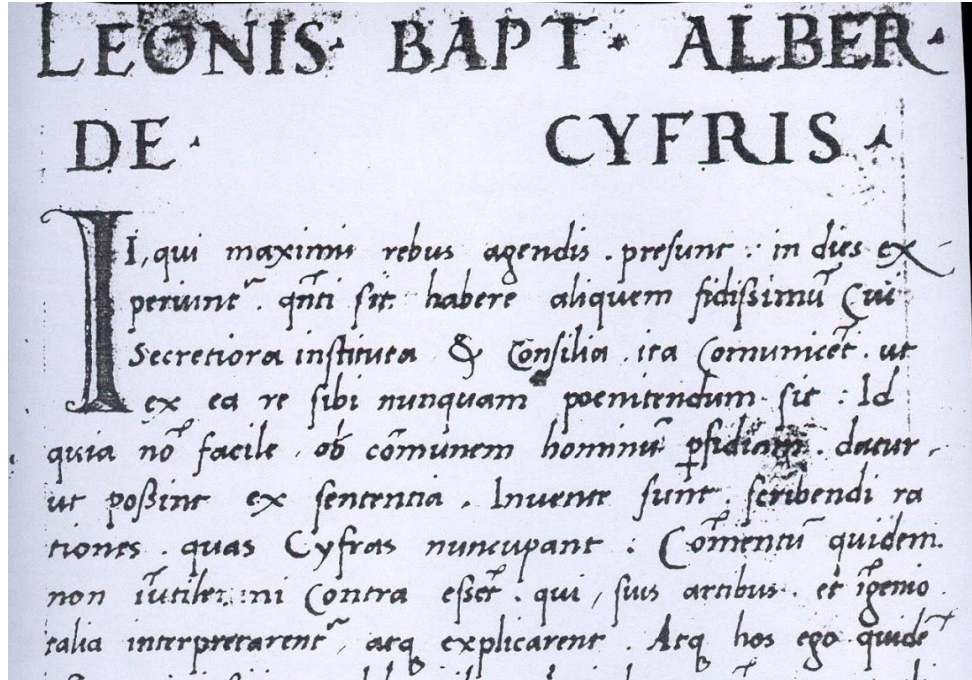 LEONIS· BAPT· ALBER·
DE· CYFRIS·
II, qui maximis rebus agendis . presunt : in dies ex
periunt᷑ . qn̄ti sit habere aliquem fidissimū Cui
Secretiora instituta & Consilia . ita Comunicēt . ut
ex ea re sibi nunquam poenitendum sit : Id
quia nō facile . ob cōmunem hominū ꝑfidiam . datur .
ut possint ex sententia . Invente sunt . scribendi ra
tiones . quas Cyfras nuncupant : Cōmentū quidem.
non īutile: ni Contra essēt . qui , suis artibus . et īgenio
talia interpretarent᷑ , atq explicarent . Atq hos ego quidē